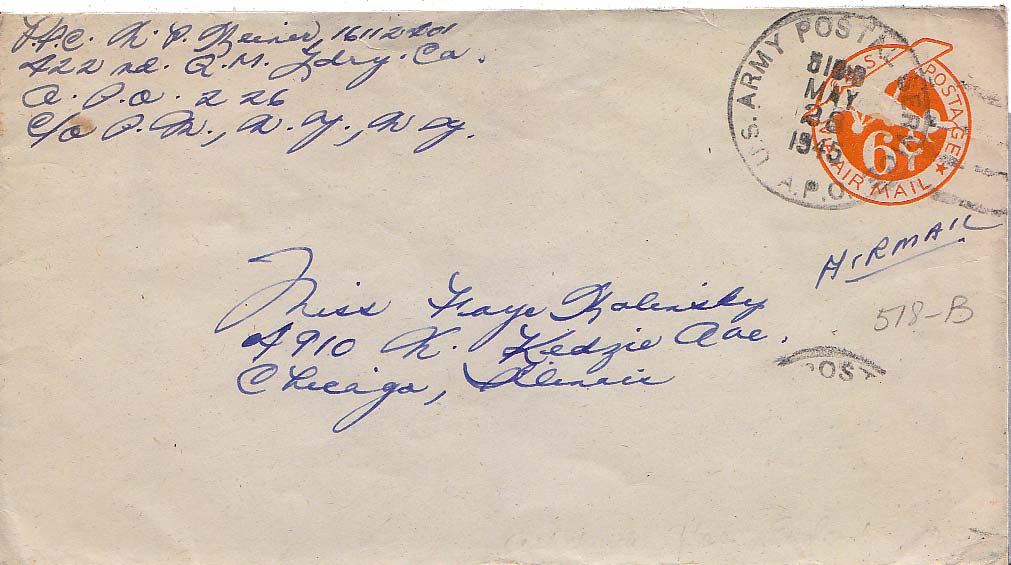 Pfc. N. P. Reiner, 16112401
422 nd. Q.M. Ldry. Co.
A. P. O. 226
C/o P.M., N.Y., N.Y.
U.S. ARMY POSTAL
MAY
28
1945
A.P.O.
U.S. POSTAGE
6¢
AIR MAIL
AIRMAIL
Miss Faye Rolinsky
4910 N. Kedzie Ave.
Chicago, Illinois
518-B
POST